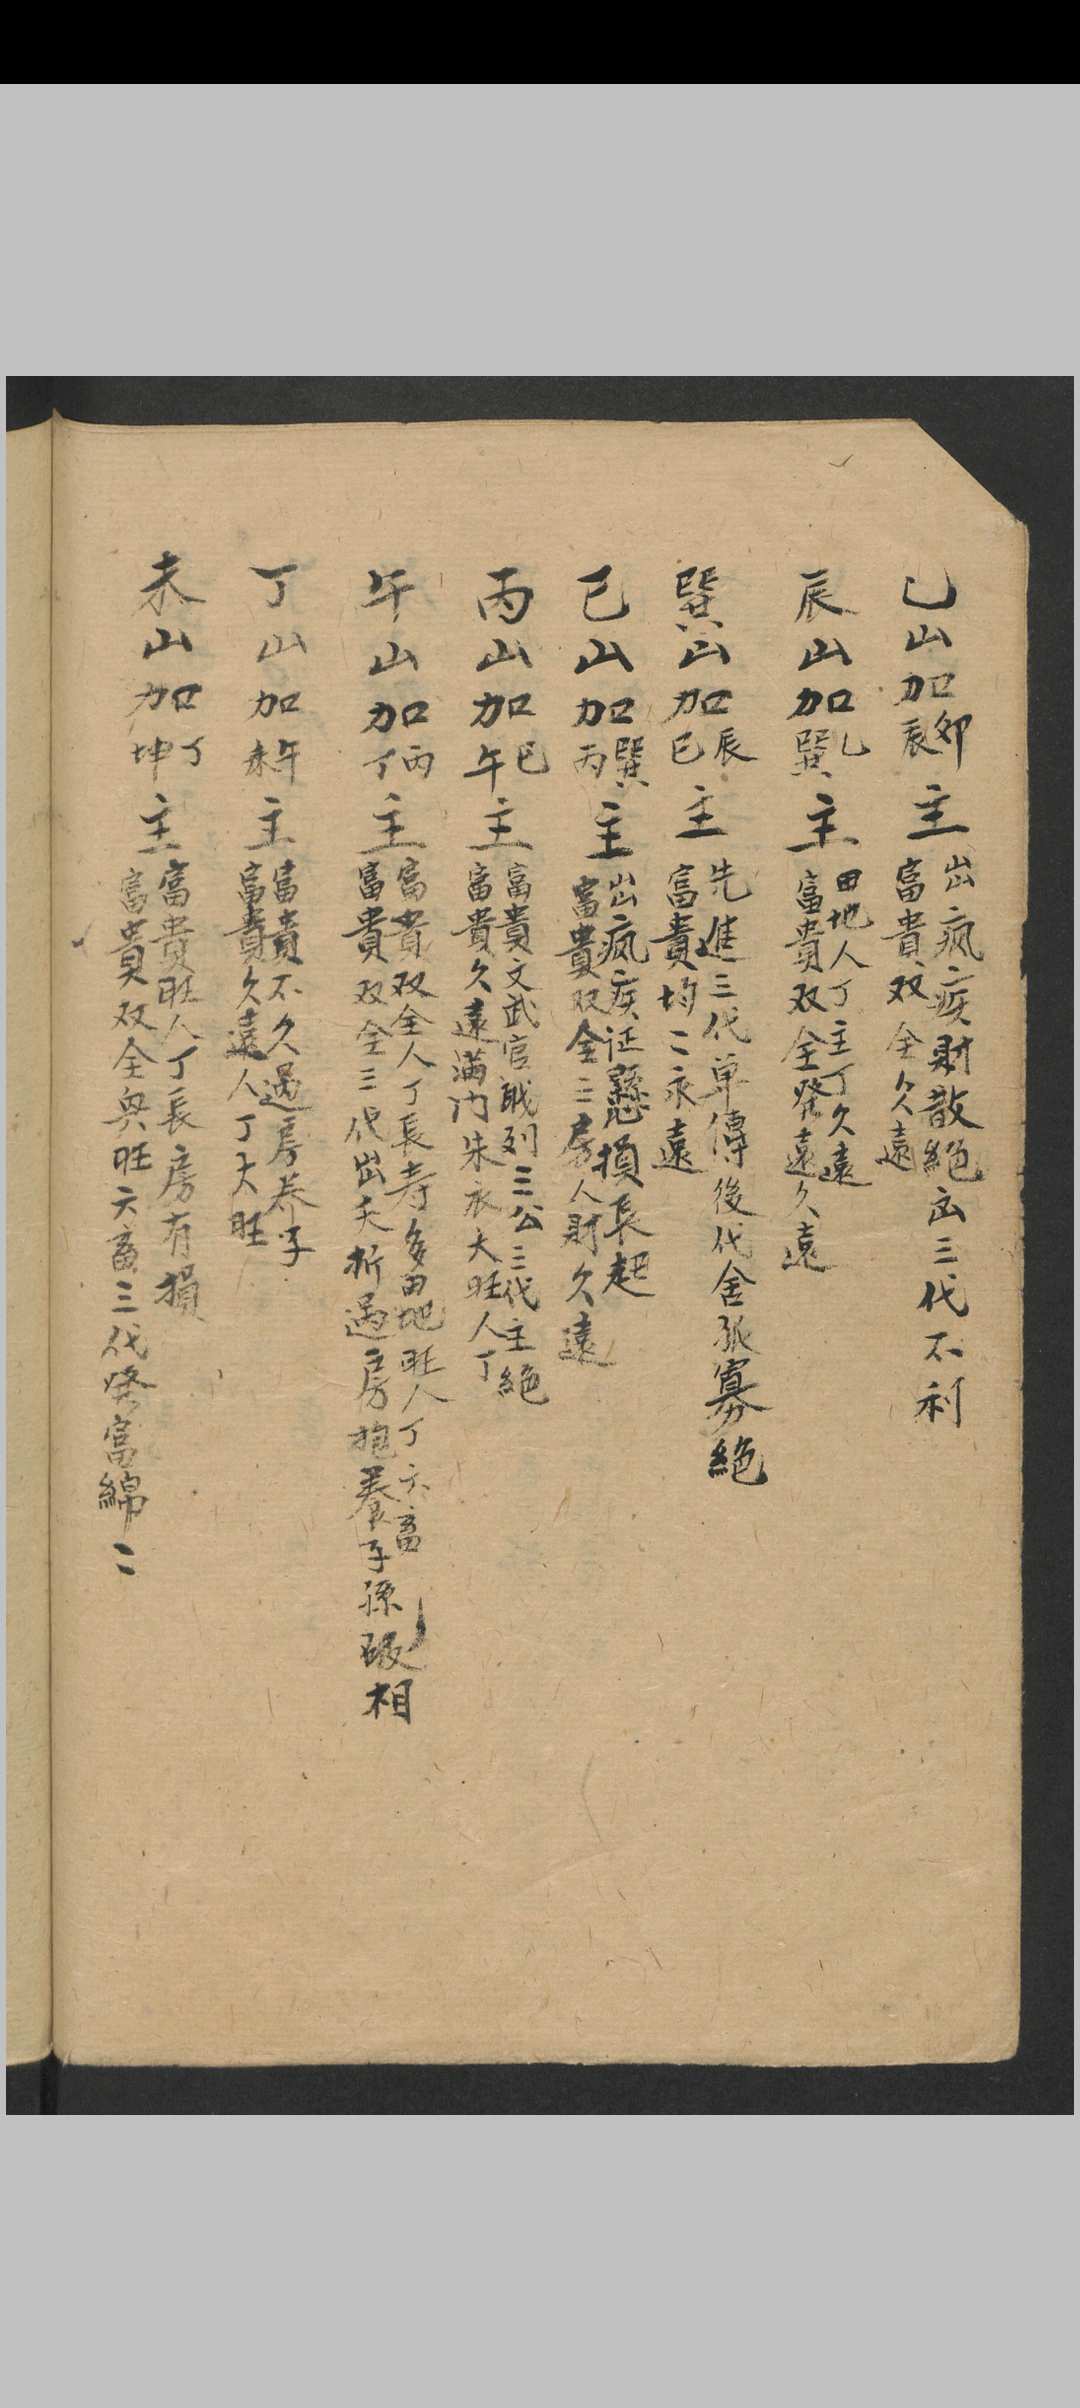 乙山加
卯
辰
主
出瘋疾財散絕出三代不利
富貴双全久遠
辰山加
乙
巽
主
田地人丁主丁久遠
富貴双全發遠久遠
巽山加
辰
巳
主
先進三代单傳後代舍孤寡絕
富貴均二永遠
巳山加
巽
丙
主
出瘋疾证懸損長起
富貴双全三房人財久遠
丙山加
巳
午
主
富貴文武官戝列三公三代主絕
富貴久遠滿门朱衣大旺人丁
午山加
丙
丁
主
富貴双全人丁長寿多田地旺人丁六畜
富貴双全三代出夭折過房抱養子孫破相
丁山加
午
未
主
富貴不久過房养子
富貴久遠人丁大旺
未山加
丁
坤
主
富貴旺人丁長房有損
富貴双全興旺六畜三代發富綿二